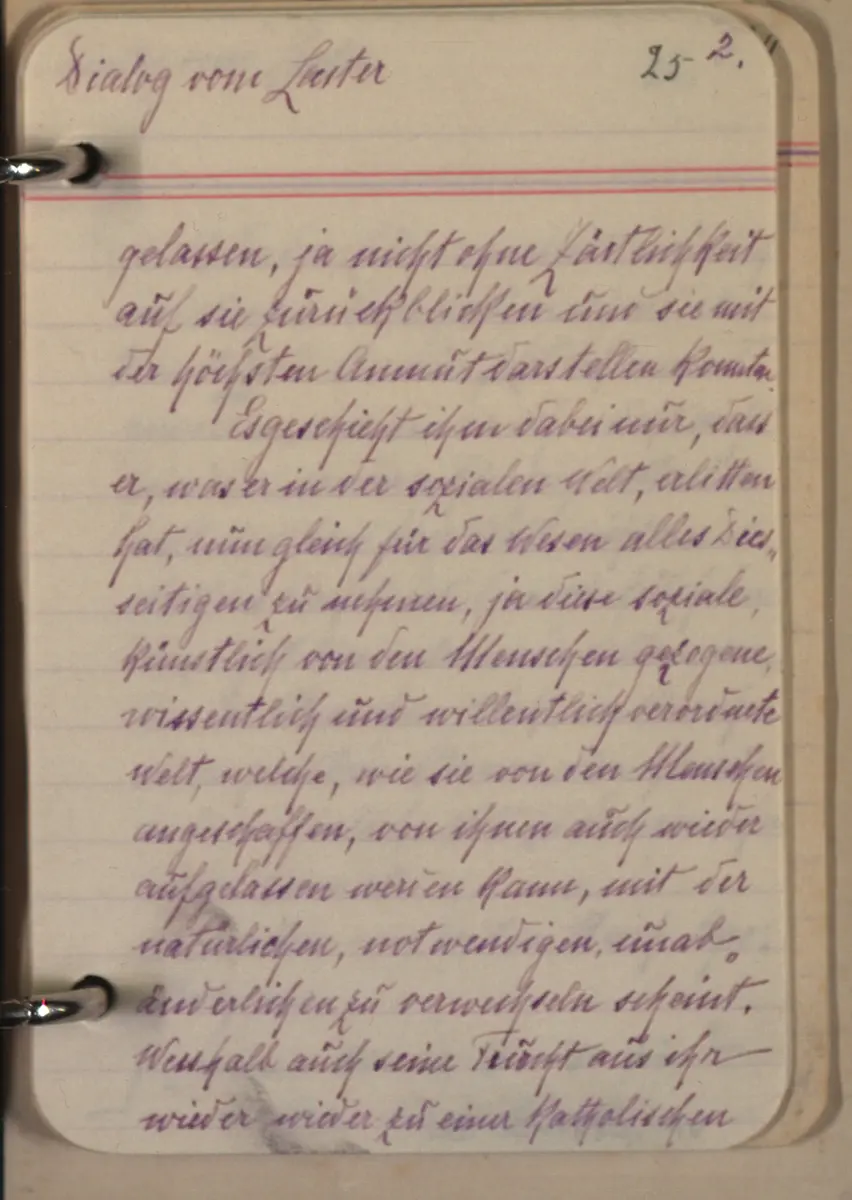 Dialog vom Laster
25 2.
gelassen, ja nicht ohne Zärtlichkeit
auf sie zurückblicken und sie mit
der höchsten Anmut darstellen konnte.
Es geschieht ihm dabei nur, dass
er, was er in der sozialen Welt, erlitten
hat, nun gleich für das Wesen alles Dies-
seitigen zu nehmen, ja diese soziale,
künstlich von den Menschen gezogene,
wissentlich und willentlich verordnete
Welt, welche, wie sie von den Menschen
angeschaffen, von ihnen auch wieder
aufgelassen werden kann, mit der
natürlichen, notwendigen, unab-
änderlichen zu verwechseln scheint.
Wesshalb auch seine Flucht aus ihr
wieder wieder zu einer katholischen